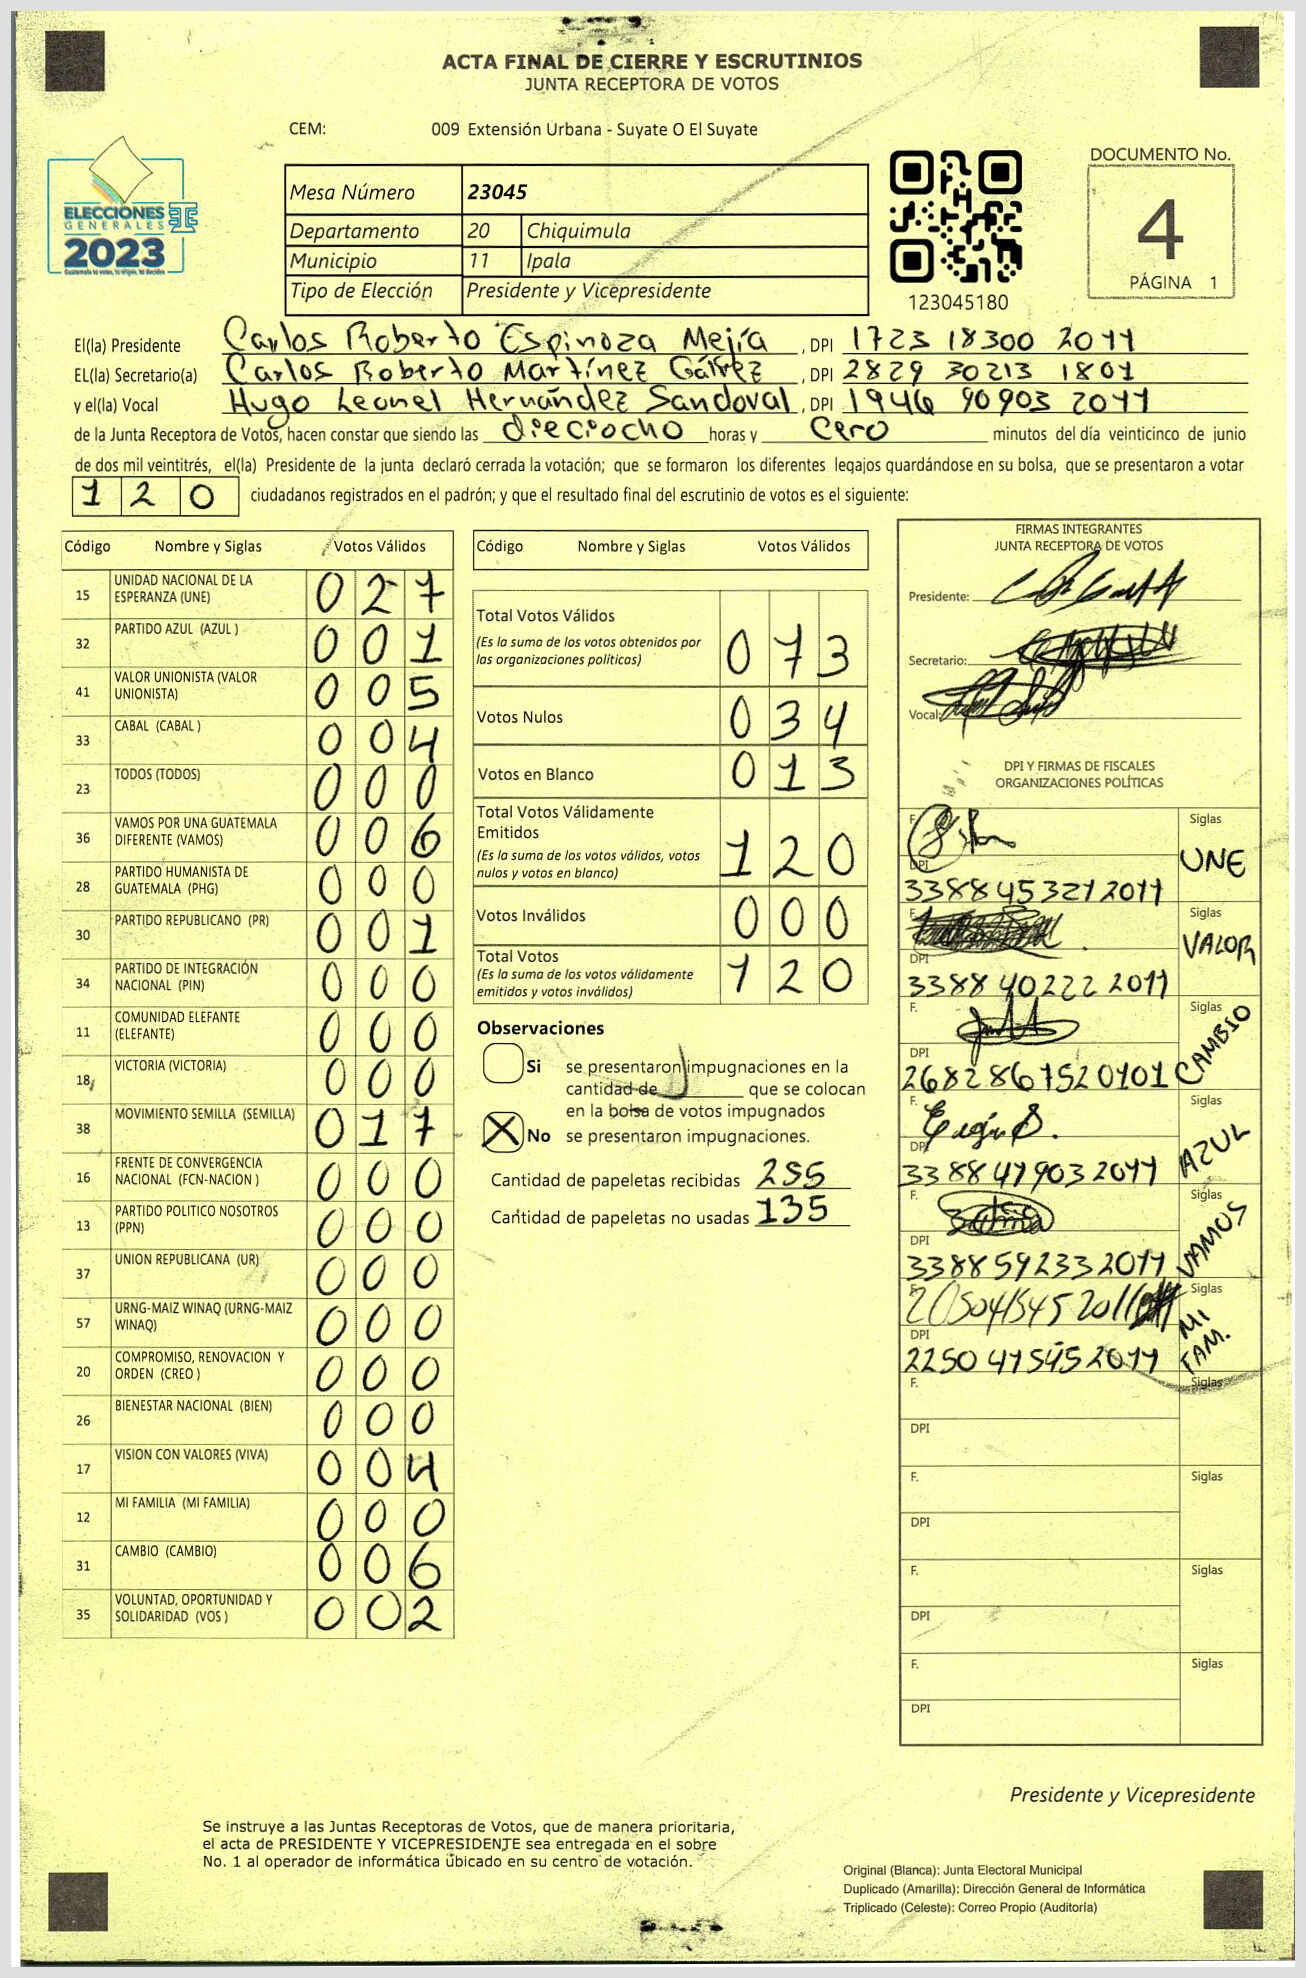 ACTA FINAL DE CIERRE Y ESCRUTINIOS
JUNTA RECEPTORA DE VOTOS
CEM: 009 Extensión Urbana - Suyate O El Suyate
ELECCIONES
GENERALES
2023
Mesa Número 23045
Departamento 20 Chiquimula
Municipio 11 Ipala
Tipo de Elección Presidente y Vicepresidente
123045180
DOCUMENTO No.
4
PÁGINA 1
El(la) Presidente Carlos Roberto Espinoza Mejía , DPI 1723 18300 2011
EL(la) Secretario(a) Carlos Roberto Martínez Gálvez , DPI 2829 30213 1801
y el(la) Vocal Hugo Leonel Hernández Sandoval , DPI 1946 90903 2011
de la Junta Receptora de Votos, hacen constar que siendo las dieciocho horas y cero minutos del día veinticinco de junio
de dos mil veintitrés, el(la) Presidente de la junta declaró cerrada la votación; que se formaron los diferentes legajos guardándose en su bolsa, que se presentaron a votar
120 ciudadanos registrados en el padrón; y que el resultado final del escrutinio de votos es el siguiente:
Código Nombre y Siglas Votos Válidos
15 UNIDAD NACIONAL DE LA ESPERANZA (UNE) 027
32 PARTIDO AZUL (AZUL ) 001
41 VALOR UNIONISTA (VALOR UNIONISTA) 005
33 CABAL (CABAL ) 004
23 TODOS (TODOS) 000
36 VAMOS POR UNA GUATEMALA DIFERENTE (VAMOS) 006
28 PARTIDO HUMANISTA DE GUATEMALA (PHG) 000
30 PARTIDO REPUBLICANO (PR) 001
34 PARTIDO DE INTEGRACIÓN NACIONAL (PIN) 000
11 COMUNIDAD ELEFANTE (ELEFANTE) 000
18 VICTORIA (VICTORIA) 000
38 MOVIMIENTO SEMILLA (SEMILLA) 017
16 FRENTE DE CONVERGENCIA NACIONAL (FCN-NACION ) 000
13 PARTIDO POLITICO NOSOTROS (PPN) 000
37 UNION REPUBLICANA (UR) 000
57 URNG-MAIZ WINAQ (URNG-MAIZ WINAQ) 000
20 COMPROMISO, RENOVACION Y ORDEN (CREO ) 000
26 BIENESTAR NACIONAL (BIEN) 000
17 VISION CON VALORES (VIVA) 004
12 MI FAMILIA (MI FAMILIA) 000
31 CAMBIO (CAMBIO) 006
35 VOLUNTAD, OPORTUNIDAD Y SOLIDARIDAD (VOS ) 002
Código Nombre y Siglas Votos Válidos
Total Votos Válidos 073
(Es la suma de los votos obtenidos por
las organizaciones políticas)
Votos Nulos 034
Votos en Blanco 013
Total Votos Válidamente
Emitidos 120
(Es la suma de los votos válidos, votos
nulos y votos en blanco)
Votos Inválidos 000
Total Votos 120
(Es la suma de los votos válidamente
emitidos y votos inválidos)
Observaciones
Si se presentaron impugnaciones en la
cantidad de que se colocan
en la bolsa de votos impugnados
X No se presentaron impugnaciones.
Cantidad de papeletas recibidas 255
Cantidad de papeletas no usadas 135
FIRMAS INTEGRANTES
JUNTA RECEPTORA DE VOTOS
Presidente:
Secretario:
Vocal:
DPI Y FIRMAS DE FISCALES
ORGANIZACIONES POLÍTICAS
F. Siglas UNE
DPI 3388 45321 2011
F. Siglas VALOR
DPI 3388 40222 2011
F. Siglas CAMBIO
DPI 2682867520101
F. Siglas AZUL
DPI 3388 47903 2011
F. Siglas VAMOS
DPI 3388 59233 2011
F. Siglas MI FAM.
DPI 2250 41545 2011
F. Siglas
DPI
F. Siglas
DPI
F. Siglas
DPI
F. Siglas
DPI
Presidente y Vicepresidente
Se instruye a las Juntas Receptoras de Votos, que de manera prioritaria,
el acta de PRESIDENTE Y VICEPRESIDENTE sea entregada en el sobre
No. 1 al operador de informática ubicado en su centro de votación.
Original (Blanca): Junta Electoral Municipal
Duplicado (Amarilla): Dirección General de Informática
Triplicado (Celeste): Correo Propio (Auditoría)